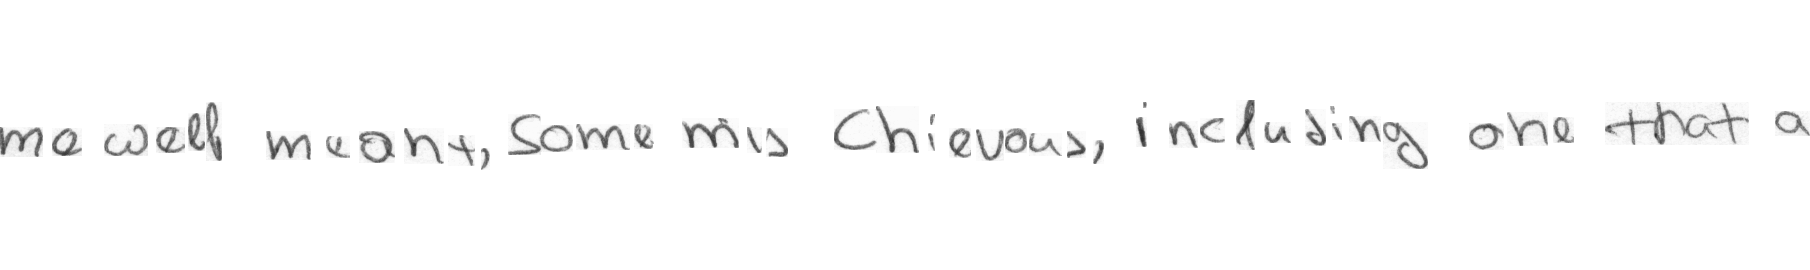 me well meant, some mis chievous, including one that a